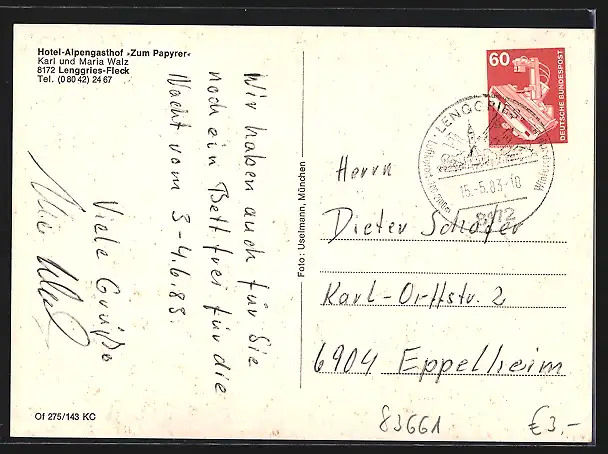 Hotel-Alpengasthof »Zum Papyrer«
Karl und Maria Walz
8172 Lenggries-Fleck
Tel. (0 80 42) 24 67
Wir haben auch für Sie
noch ein Bett frei für die
Nacht vom 3-4.6.83.
Viele Grüße
Of 275/143 KC
Foto: Uselmann, München
60
DEUTSCHE BUNDESPOST
LENGGRIES
15.-5.83-18
8172
Herrn
Dieter Schäfer
Karl-Orffstr. 2
6904 Eppelheim
83661
€ 3,-